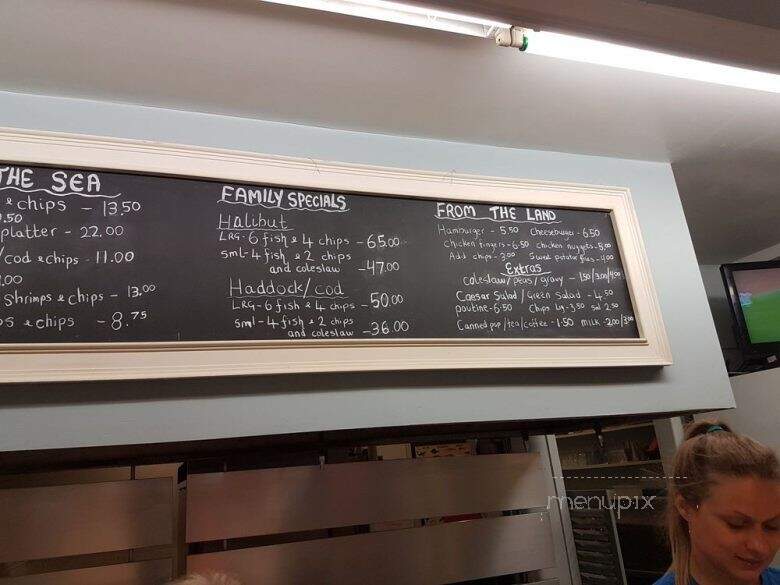 THE SEA
& chips - 13.50
.50
platter - 22.00
/cod & chips - 11.00
.00
Shrimps & chips - 13.00
s & chips - 8.75
FAMILY SPECIALS
Halibut
LRG-6 fish & 4 chips - 65.00
Sml-4 fish & 2 chips
and coleslaw - 47.00
Haddock/cod
LRG-6 fish & 4 chips - 50.00
Sml-4 fish & 2 chips
and coleslaw - 36.00
FROM THE LAND
Hamburger - 5.50 Cheeseburger - 6.50
chicken fingers - 6.50 chicken nuggets - 5.00
Add chips - 3.00 Sweet potatoe fries - 4.00
Extras
coleslaw/peas/gravy - 1.50/3.00/4.00
Caesar Salad/Green Salad - 4.50
poutine - 6.50 Chips Lg-3.50 sml 2.50
Canned pop/tea/coffee - 1.50 MILK - 2.00/3.00
menupix